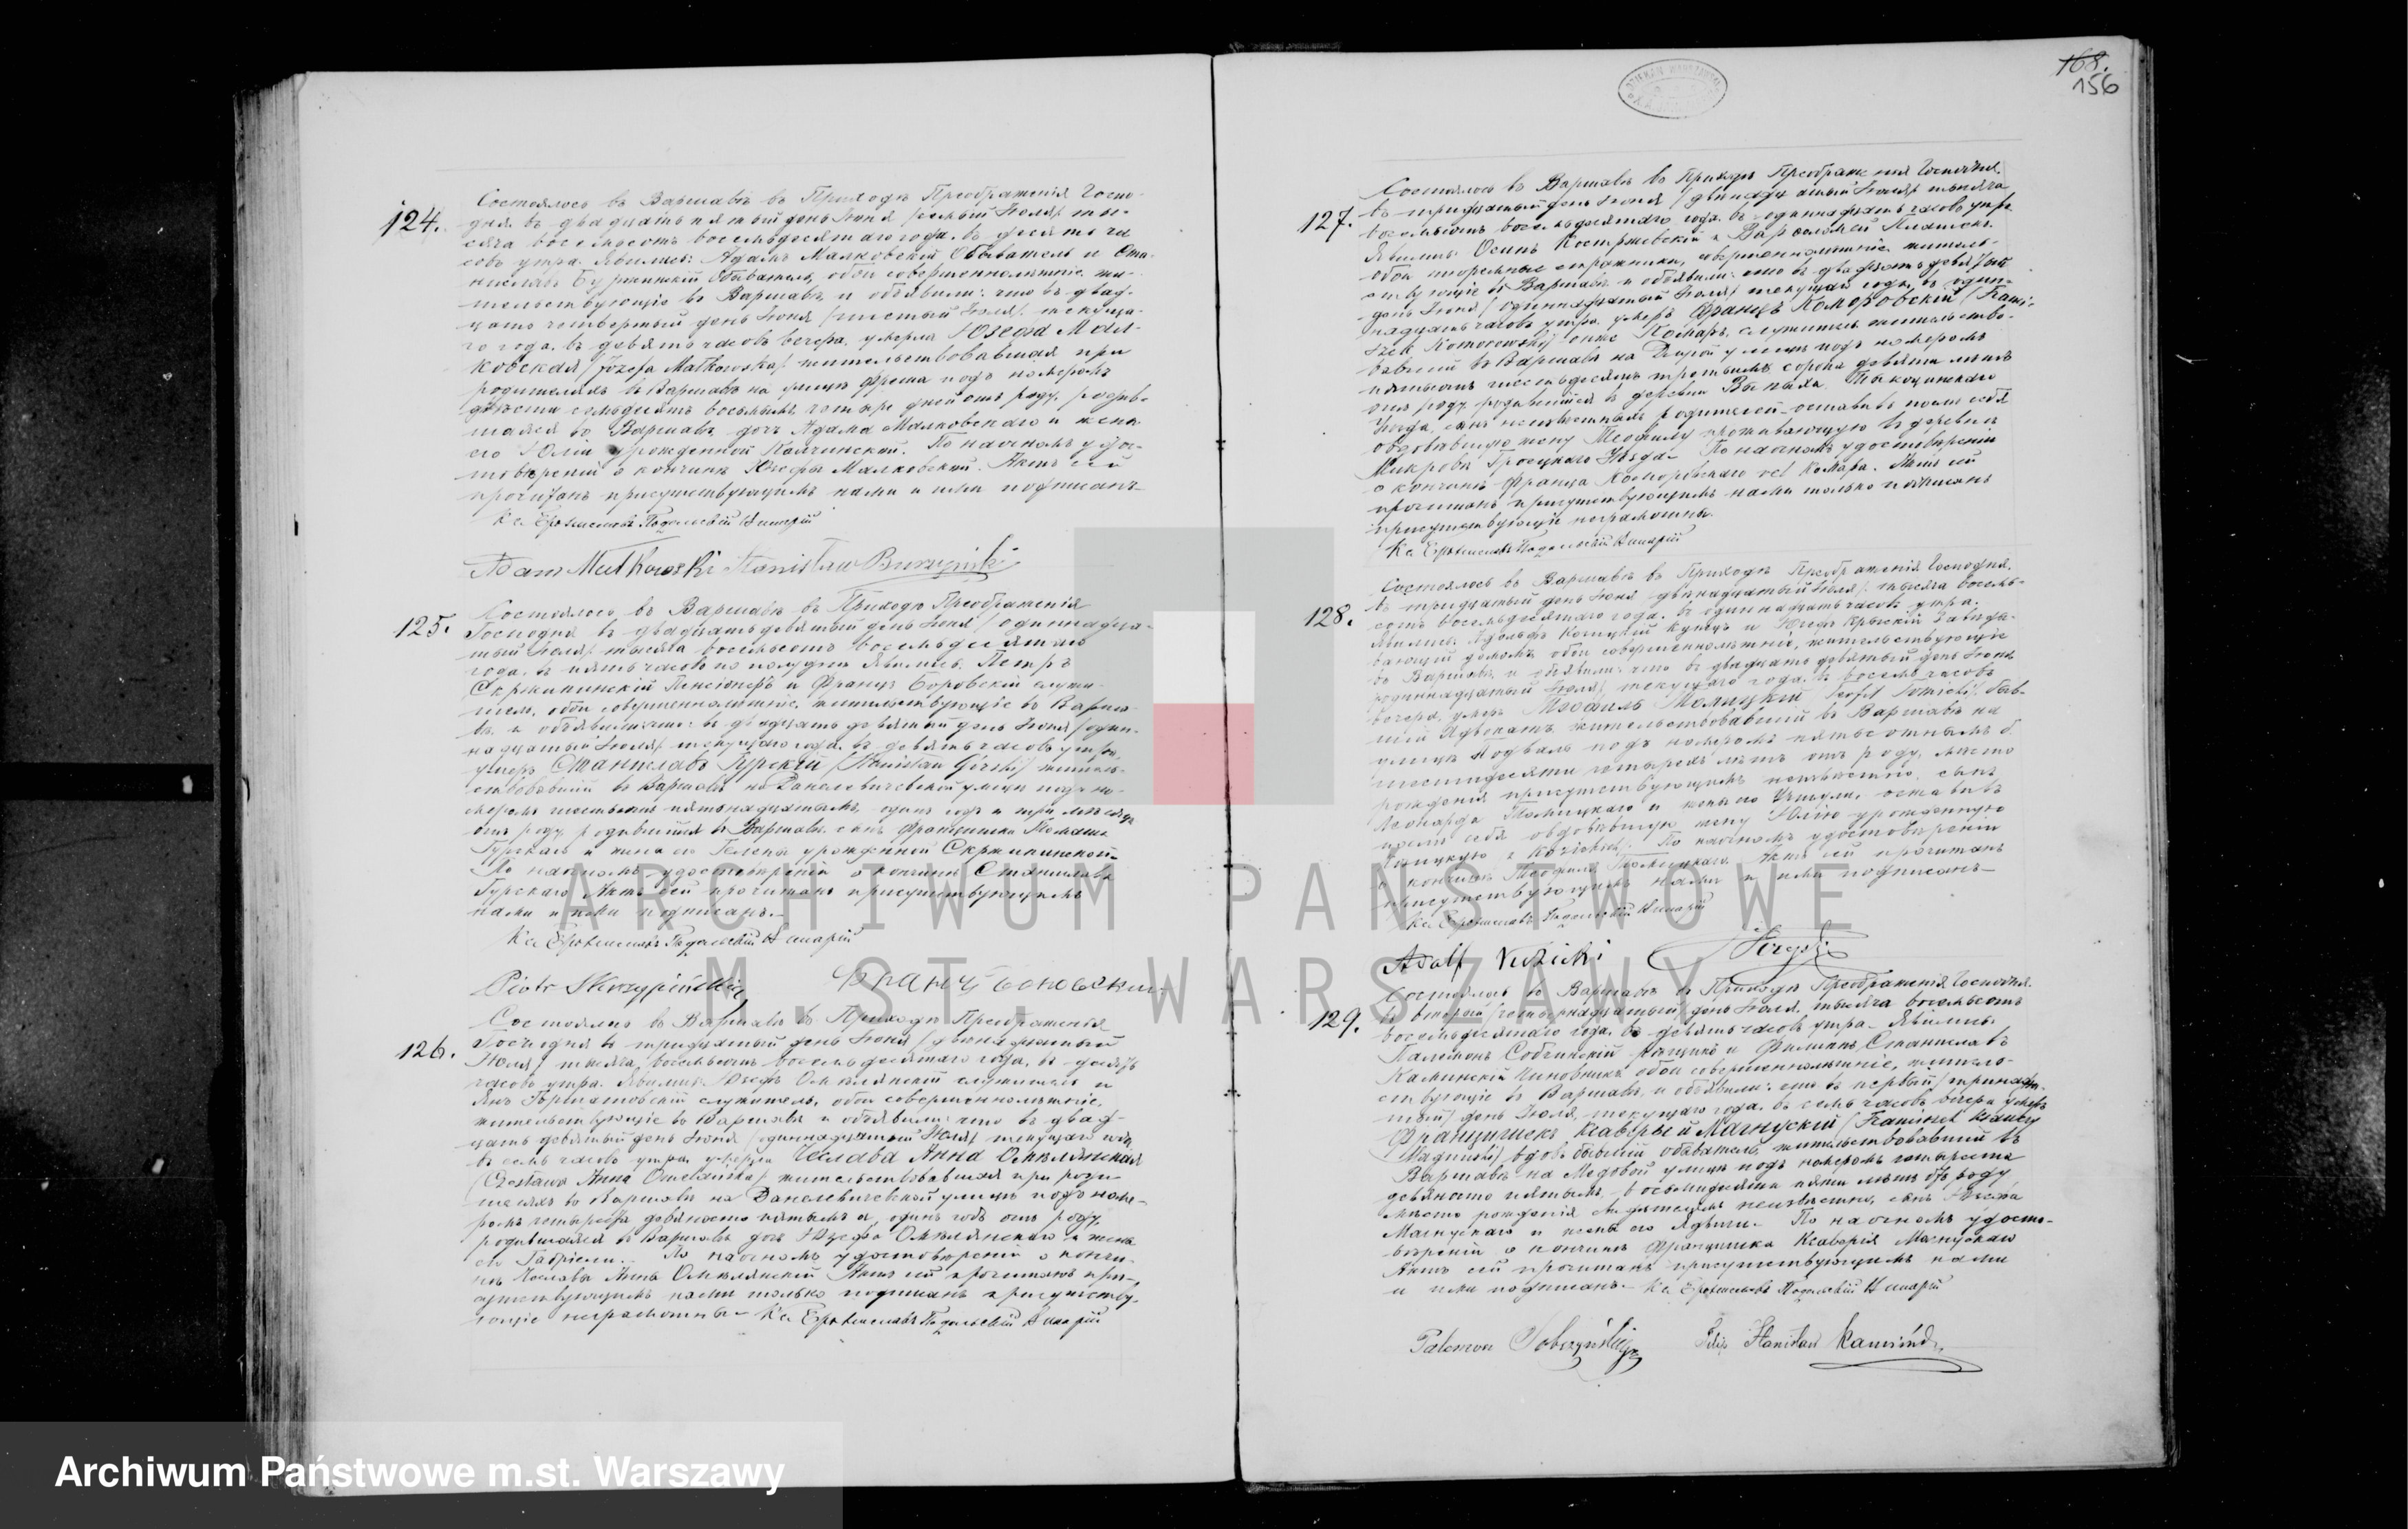 168.
156
124.
Состоялось въ Варшавѣ въ Приходѣ Преображенія Госпо-
дня въ двадцать пятый день Іюня /седьмый Іюля/ ты-
сяча восемьсотъ восемьдесятаго года, въ десять ча
совъ утра. Явились: Адамъ Малковскій Обыватель и Ста-
ниславъ Обыватель, обои совершеннолѣтніе жи-
тельствующіе въ Варшавѣ, и объявили: что въ двад-
цать четвертый день Іюня /шестый Іюля/ текуща-
го года, въ девять часовъ вечера, умерла Юзефа Мал-
ковская /Józefa Małkowska/ жительствовавшая при
родителяхъ въ Варшавѣ на улицѣ Фрета подъ номеромъ
двѣсти семьдесятъ восьмымъ, четыре дней отъ роду, родив-
шаяся въ Варшавѣ, дочь Адама Малковскаго и жены
его Юліи урожденной. По наочномъ удос-
товѣреніи о кончинѣ Юзефы Малковской. Актъ сей
прочитанъ присутствующимъ нами и ими подписанъ-
Кс.
Adam Małkowski Stanisław
125.
Состоялось въ Варшавѣ въ Приходѣ Преображенія
Господня въ двадцать девятый день Іюня /одиннадца-
тый Іюля/ тысяча восемьсотъ восемьдесятаго
года, въ пять часовъ по полудни Явились, Петръ
Скржипинскій Пенсіонеръ и Францъ Боровскій служи-
тель, обои совершеннолѣтніе, жительствующіе въ Варша-
вѣ, и объявили: что въ двадцать девятый день Іюня /один-
надцатый Іюля/ текущаго года, въ девять часовъ утра,
умеръ Станиславъ Гурскій /Stanisław Górski/ житель-
ствовавшій въ Варшавѣ на Данелевичевской улицѣ подъ но-
меромъ шестьсотъ пятьнадцатымъ, одинъ годъ и три мѣсяца
отъ роду, родившійся въ Варшавѣ, сынъ Францишка
Гурскаго и жены его Гелены урожденной Скржипинской-
По наочномъ удостовѣреніи о кончинѣ Станислава
Гурскаго Актъ сей прочитанъ присутствующимъ
нами и ими подписанъ.-
Кс.
Piotr Skrzypiński Францъ Боровскій
126.
Состоялось въ Варшавѣ въ Приходѣ Преображенія
Господня въ тридцатый день Іюня /двѣнадцатый
Іюля/ тысяча восемьсотъ восемьдесятаго года, въ десять
часовъ утра. Явились: Юзефъ Омелянскій служитель и
Янъ служитель, обои совершеннолѣтніе,
жительствующіе въ Варшавѣ и объявили что въ двад-
цать девятый день Іюня /одиннадцатый Іюля/ текущаго года,
въ семь часовъ утра, умерла Чеслава Анна Омелянская
/Czesława Anna Omelańska/ жительствовавшая при роди-
теляхъ въ Варшавѣ на Данелевичевской улицѣ подъ номе-
ромъ четыреста девяносто пятымъ а, одинъ годъ отъ роду,
родившаяся въ Варшавѣ дочь Юзефа Омелянскаго и жены
его Габріели.- По наочномъ удостовѣреніи о кончи-
нѣ Чеславы Анны Омелянской Актъ сей прочитанъ при-
сутствующимъ нами только подписанъ присутству-
ющіе неграмотны- Кс.
127.
Состоялось въ Варшавѣ въ Приходѣ Преображенія Господня,
въ тридцатый день Іюня /двѣнадцатый Іюля/ тысяча
восемьсотъ восемьдесятаго года, въ одиннадцать часовъ утра.
Явились Осипъ Костржевскій и Варѳоломей
обои тюремные стражники, совершеннолѣтніе, житель-
ствующіе въ Варшавѣ и объявили: что въ двадцать девятый
день Іюня /одиннадцатый Іюля/ текущаго года, въ один-
надцать часовъ утра, умеръ Францъ Коморовскій /Franci-
szek Komorowski/ онже Комаръ, служитель жительство-
вавшій въ Варшавѣ на улицѣ подъ номеромъ
пятьсотъ шестьдесятъ третьимъ, сорока девяти лѣтъ
отъ роду, родившійся въ деревни
Уѣзда, сынъ неизвѣстныхъ родителей- оставивъ послѣ себя
овдовѣвшую жену Теофилу проживающую въ деревни
Уѣзда- По наочномъ удостовѣреніи
о кончинѣ Франца Коморовскаго vel Комара. Актъ сей
прочитанъ присутствующимъ нами только подписанъ
присутствующіе неграмотны.
Кс.
128.
Состоялось въ Варшавѣ въ Приходѣ Преображенія Господня,
въ тридцатый день Іюня /двѣнадцатый Іюля/ тысяча восемь-
сотъ восемьдесятаго года, въ одиннадцать часовъ утра.
Явились, Адольфъ купецъ и Юзефъ Крыскій Завѣды-
вающій домомъ, обои совершеннолѣтніе, жительствующіе
въ Варшавѣ, и объявили: что въ двадцать девятый день Іюня
/одиннадцатый Іюля/ текущаго года, въ восемь часовъ
вечера, умеръ Теофиль Томицкій /Teofil Tomicki/ быв-
шій Адвокатъ жительствовавшій въ Варшавѣ на
улицѣ Подваль подъ номеромъ пятьсотнымъ б
шестидесяти четырехъ лѣтъ отъ роду, мѣсто
рожденія присутствующимъ неизвѣстно, сынъ
Леонарда Томицкаго и жены его Уршули, оставивъ
послѣ себя овдовѣвшую жену Юлію урожденную
По наочномъ удостовѣреніи
о кончинѣ Теофиля Томицкаго Актъ сей прочитанъ
присутствующимъ нами и ими подписанъ-
Кс.
Adolf
129.
Состоялось въ Варшавѣ въ Приходѣ Преображенія Господня,
въ второй /четырнадцатый/ день Іюля, тысяча восемьсотъ
восемьдесятаго года, въ девять часовъ утра- Явились:
Палемонъ Собчинскій и Филипъ Станиславъ
Каминскій Чиновникъ обои совершеннолѣтніе, житель-
ствующіе въ Варшавѣ, и объявили: что въ первый /тринадца-
тый/ день Іюля, текущаго года, въ семь часовъ вечера умеръ
Францишекъ Ксаверый Магнускій /Franciszek Ksawery
Magnuski/ вдовъ бывшій обыватель, жительствовавшій въ
Варшавѣ на Медовой улицѣ подъ номеромъ четыреста
девяносто пятымъ, восьмидесяти пяти лѣтъ отъ роду
мѣсто рожденія неизвѣстно, сынъ
Магнускаго и жены его Ядвиги.- По наочномъ удосто-
вѣреніи о кончинѣ Францишка Ксаверія Магнускаго
Актъ сей прочитанъ присутствующимъ нами
и ими подписанъ.- Кс.
Palemon Sobczyński Filip Stanisław Kamiński
ARCHIWUM PAŃSTWOWE
M.ST. WARSZAWY
Archiwum Państwowe m.st. Warszawy